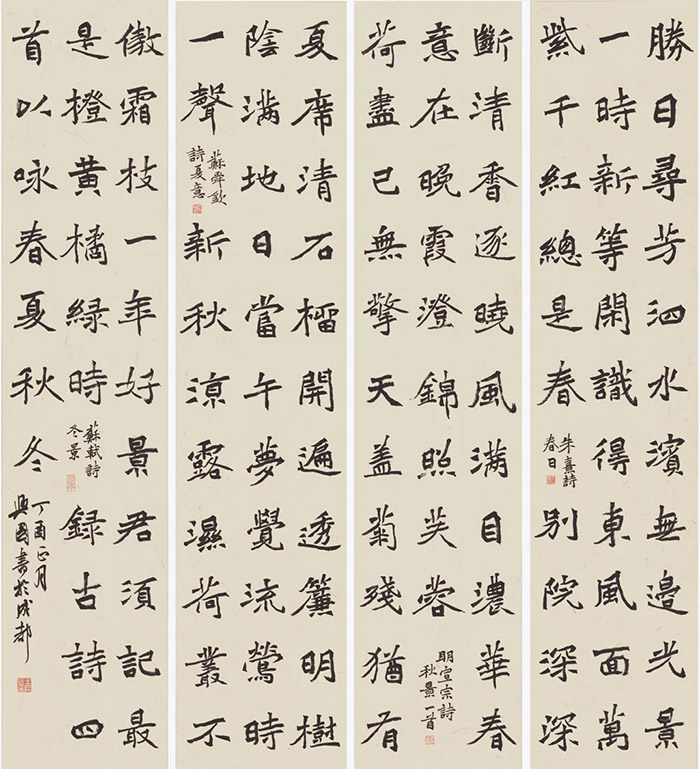 勝日尋芳泗水濱無邊光景
一時新等閑識得東風面萬
紫千紅總是春
朱熹詩
春日
別院深深
斷清香逐曉風滿目濃華春
意在晚霞澄錦照芙蓉
明宣宗詩
秋景一首
荷盡已無擎天蓋菊殘猶有
夏席清石榴開遍透簾明樹
陰滿地日當午夢覺流鶯時
一聲
蘇舜欽
詩夏意
新秋涼露濕荷叢不
傲霜枝一年好景君須記最
是橙黄橘緑時
蘇軾詩
冬景
録古詩四
首以咏春夏秋冬
丁酉正月
興國書於成都